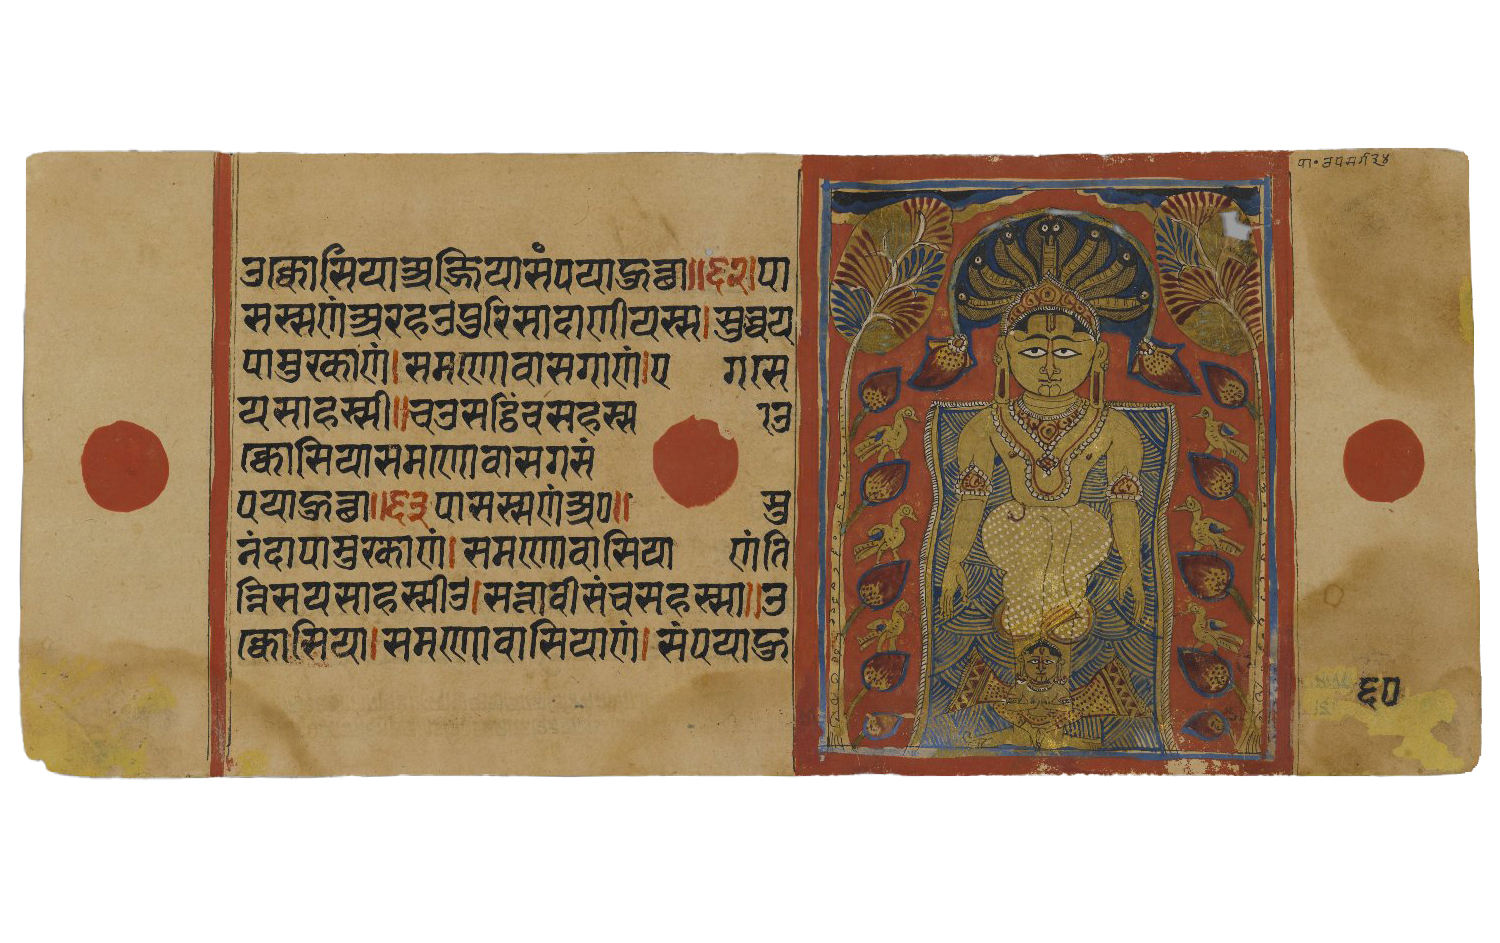 पा॰ उपसर्ग ३४
उक्कोसियाअज्जियासंपयाहुत्था॥६२।पा
सस्सणंअरहउपुरिसादाणीयस्स।सुव्वय
पामुरकाणं।समणोवासगाणं।ए गास
यसाहस्सी॥चउसट्ठिंचसहस्स ाउ
क्कोसियासमणोवासगसं
पयाहुत्था॥६३पासस्सणंअर॥ सु
नंदापामुरकाणं।समणोवासिया णंति
न्निसयसाहस्सीउ।सत्तावीसंचसहस्सा॥उ
क्कोसिया।समणोवासियाणं।संपयाहु
६०